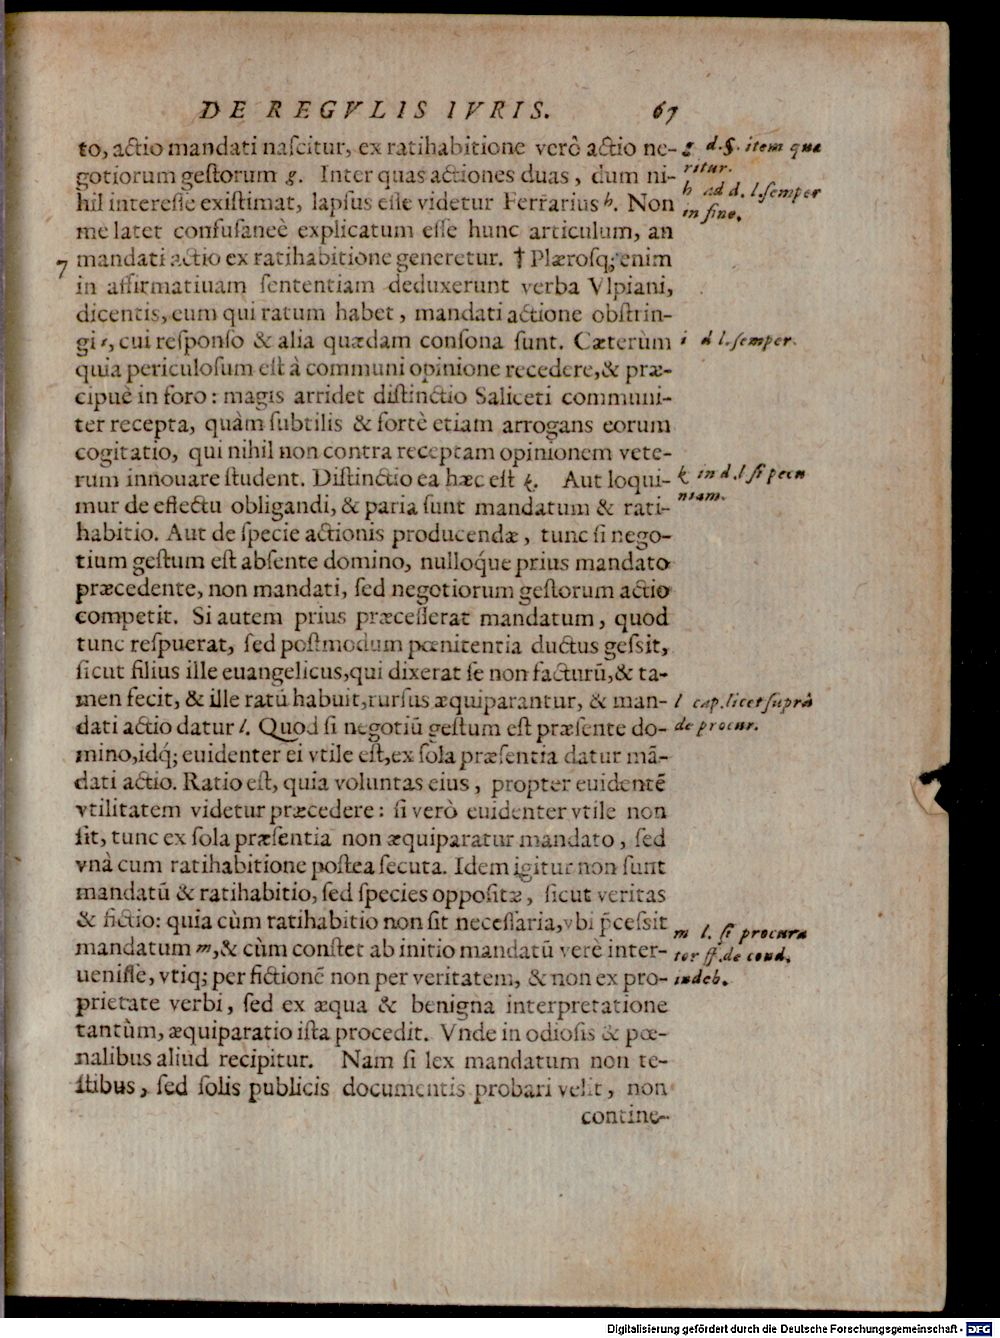 DE REGVLIS IVRIS. 67
to, actio mandati nascitur, ex ratihabitione verò actio ne-
gotiorum gestorum g. Inter quas actiones duas, dum ni-
hil interesse existimat, lapsus esse videtur Ferrarius h. Non
me latet confusaneè explicatum esse hunc articulum, an
7 mandati actio ex ratihabitione generetur. † Plærosq; enim
in affirmatiuam sententiam deduxerunt verba Vlpiani,
dicentis, eum qui ratum habet, mandati actione obstrin-
gi i, cui responso & alia quædam consona sunt. Cæterùm
quia periculosum est à communi opinione recedere, & præ-
cipuè in foro: magis arridet distinctio Saliceti communi-
ter recepta, quàm subtilis & fortè etiam arrogans eorum
cogitatio, qui nihil non contra receptam opinionem vete-
rum innouare student. Distinctio ea hæc est k. Aut loqui-
mur de effectu obligandi, & paria sunt mandatum & rati-
habitio. Aut de specie actionis producendæ, tunc si nego-
tium gestum est absente domino, nulloq́ue prius mandato
præcedente, non mandati, sed negotiorum gestorum actio
competit. Si autem prius præcesserat mandatum, quod
tunc respuerat, sed postmodum pœnitentia ductus gessit,
sicut filius ille euangelicus, qui dixerat se non facturū, & ta-
men fecit, & ille ratū habuit, rursus æquiparantur, & man-
dati actio datur l. Quod si negotiū gestum est præsente do-
mino, idq́; euidenter ei vtile est, ex sola præsentia datur mā-
dati actio. Ratio est, quia voluntas eius, propter euidentē
vtilitatem videtur præcedere: si verò euidenter vtile non
sit, tunc ex sola præsentia non æquiparatur mandato, sed
vnà cum ratihabitione postea secuta. Idem igitur non sunt
mandatū & ratihabitio, sed species oppositæ, sicut veritas
& fictio: quia cùm ratihabitio non sit necessaria, vbi p̄cessit
mandatum m, & cùm constet ab initio mandatū verè inter-
uenisse, vtiq; per fictionē non per veritatem, & non ex pro-
prietate verbi, sed ex æqua & benigna interpretatione
tantùm, æquiparatio ista procedit. Vnde in odiosis & pœ-
nalibus aliud recipitur. Nam si lex mandatum non te-
stibus, sed solis publicis documentis probari velit, non
contine-
g d. §. item quæ
ritur.
h ad d. l. semper
in fine.
i d l. semper.
k in d. l si pecu
niam.
l cap. licet suprà
de procur.
m l. si procura
tor ff. de cond.
indeb.
Digitalisierung gefördert durch die Deutsche Forschungsgemeinschaft - DFG